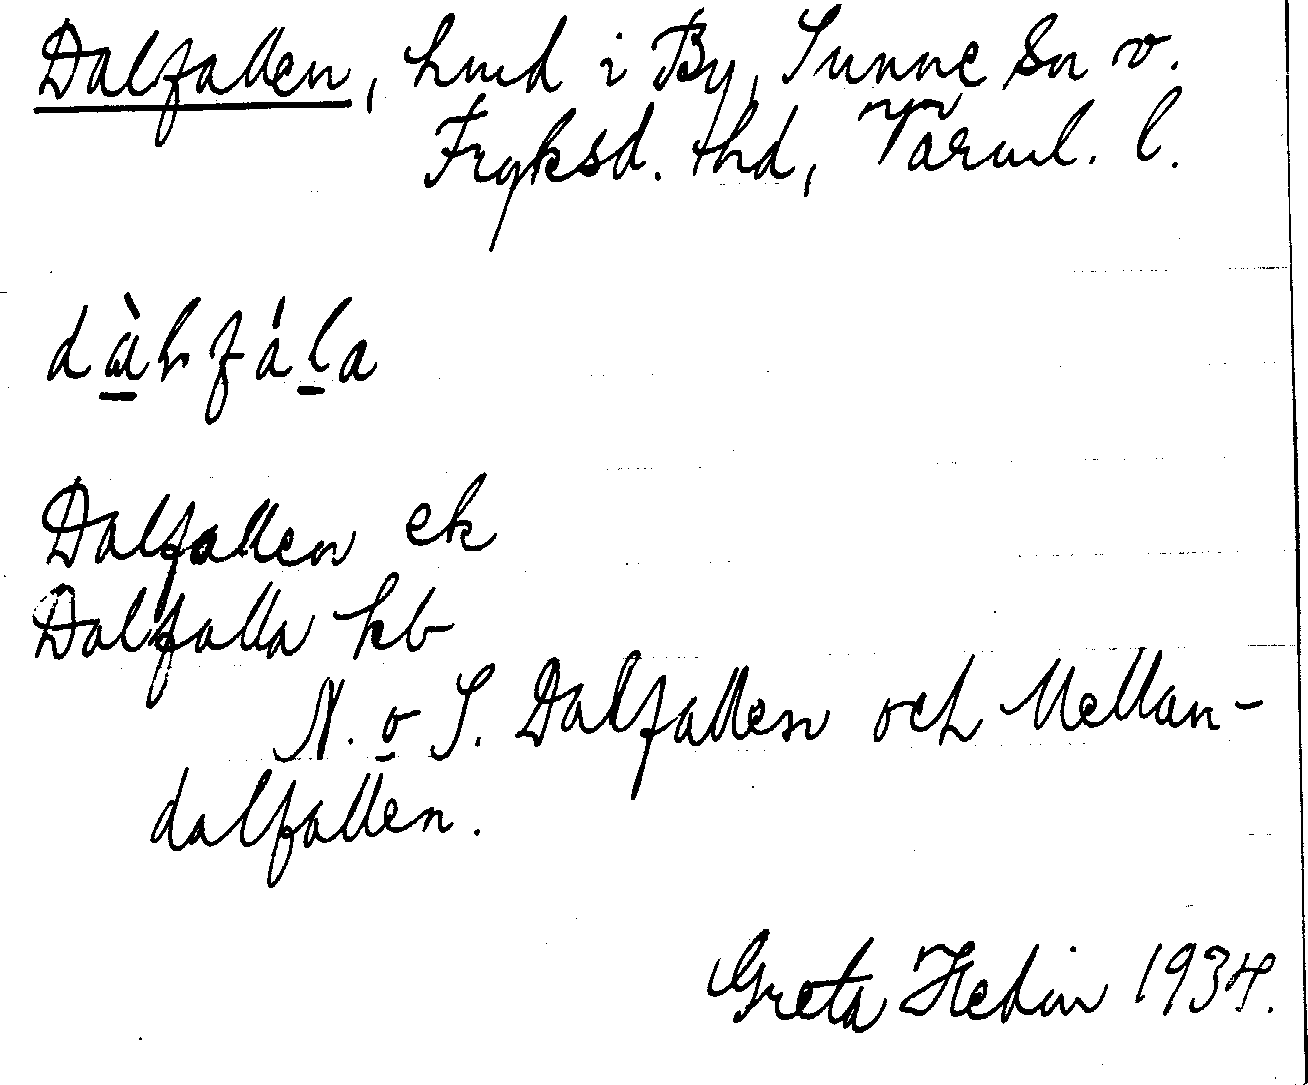 Dalfallen, hmd i By, Sunne Sn o.
Fryksd. thd, Värml. l.
Dalfallen ek
Dalfalla kb
N. o S. Dalfallen och Mellan-
dalfallen.
Greta Hedin 1934.